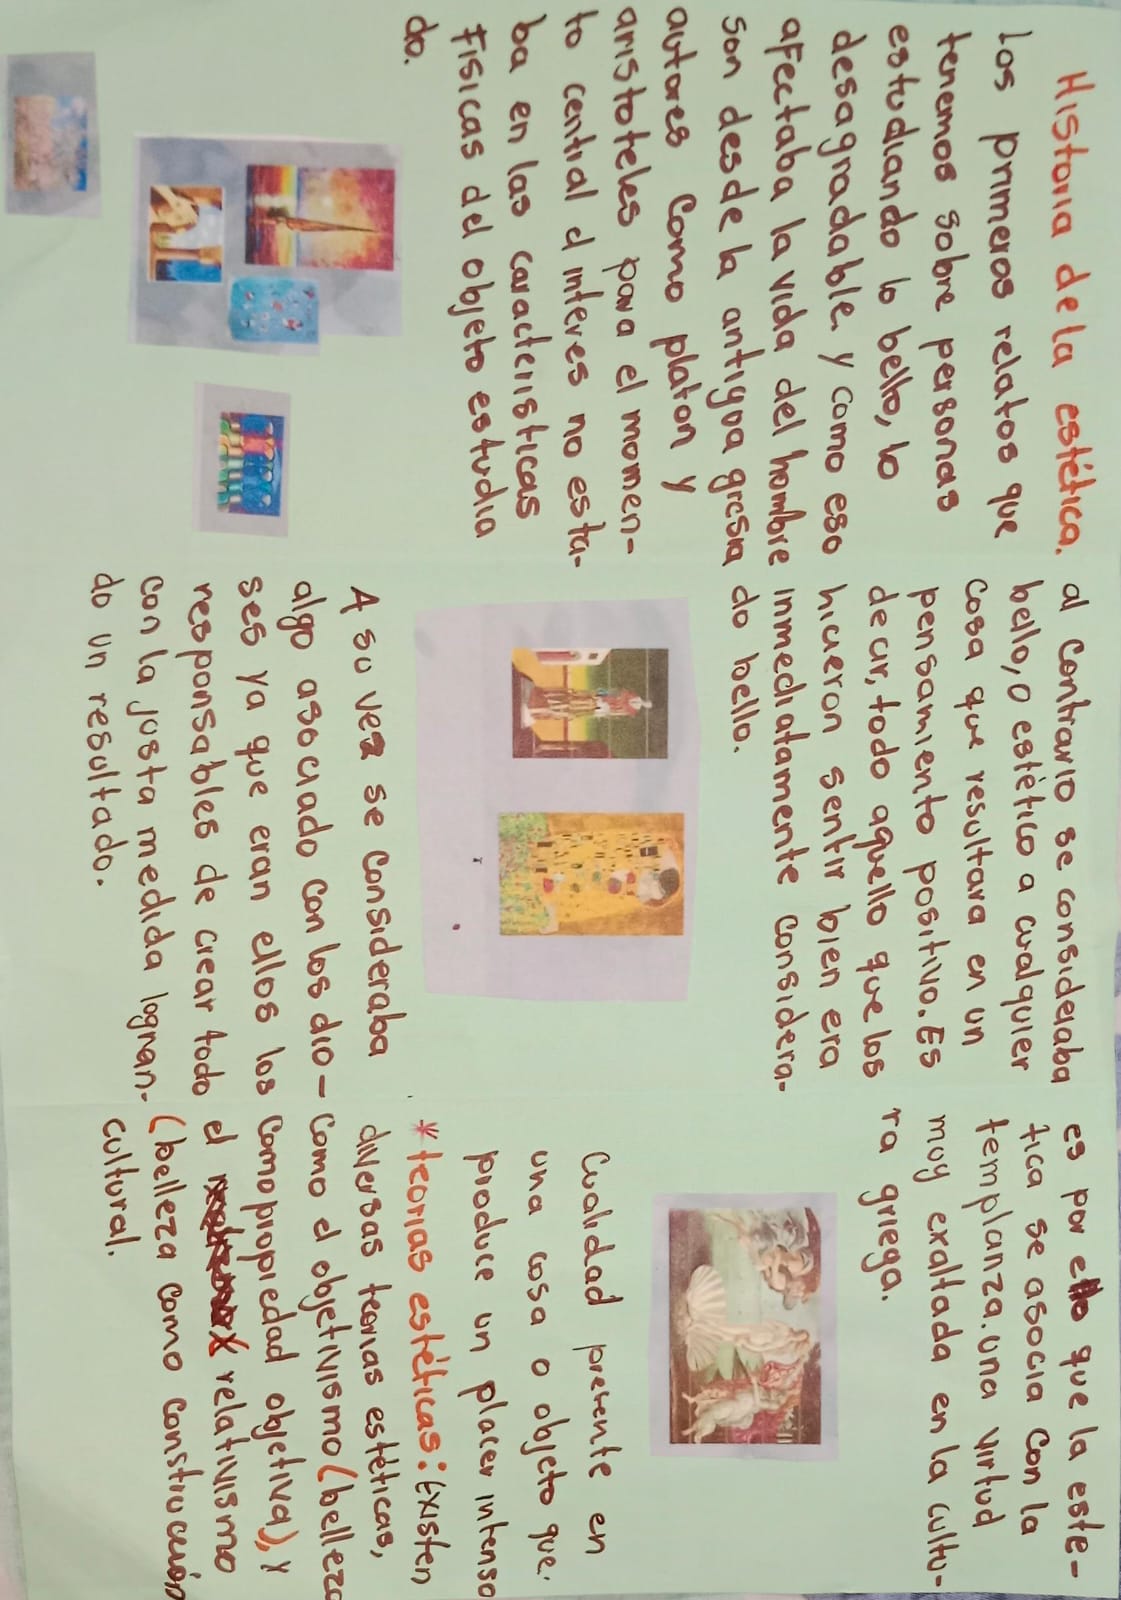 Historia de la estética.
Los primeros relatos que
tenemos sobre personas
estudiando lo bello, lo
desagradable, y como eso
afectaba la vida del hombre
son desde la antigua gresia
autores como platon y
aristoteles para el momen-
to central el interes no esta-
ba en las caracteristicas
fisicas del objeto estudia
do.
al contrario se consideraba
bello, o estético a cualquier
cosa que resultara en un
pensamiento positivo. Es
decir, todo aquello que los
hicieron sentir bien era
inmediatamente considera-
do bello.
A su vez se consideraba
algo asociado con los dio-
ses ya que eran ellos los
responsables de crear todo
con la justa medida lognan-
do un resultado.
es por ello que la este-
tica se asocia con la
templanza. una virtud
muy exaltada en la cultu-
ra griega.
Cualidad prerente en
una cosa o objeto que.
produce un placer intenso
*teorias estéticas: Existen
diversas teorias estéticas,
como el objetivismo (belleza
como propiedad objetiva), y
el relativismo
(belleza como construcción
cultural.